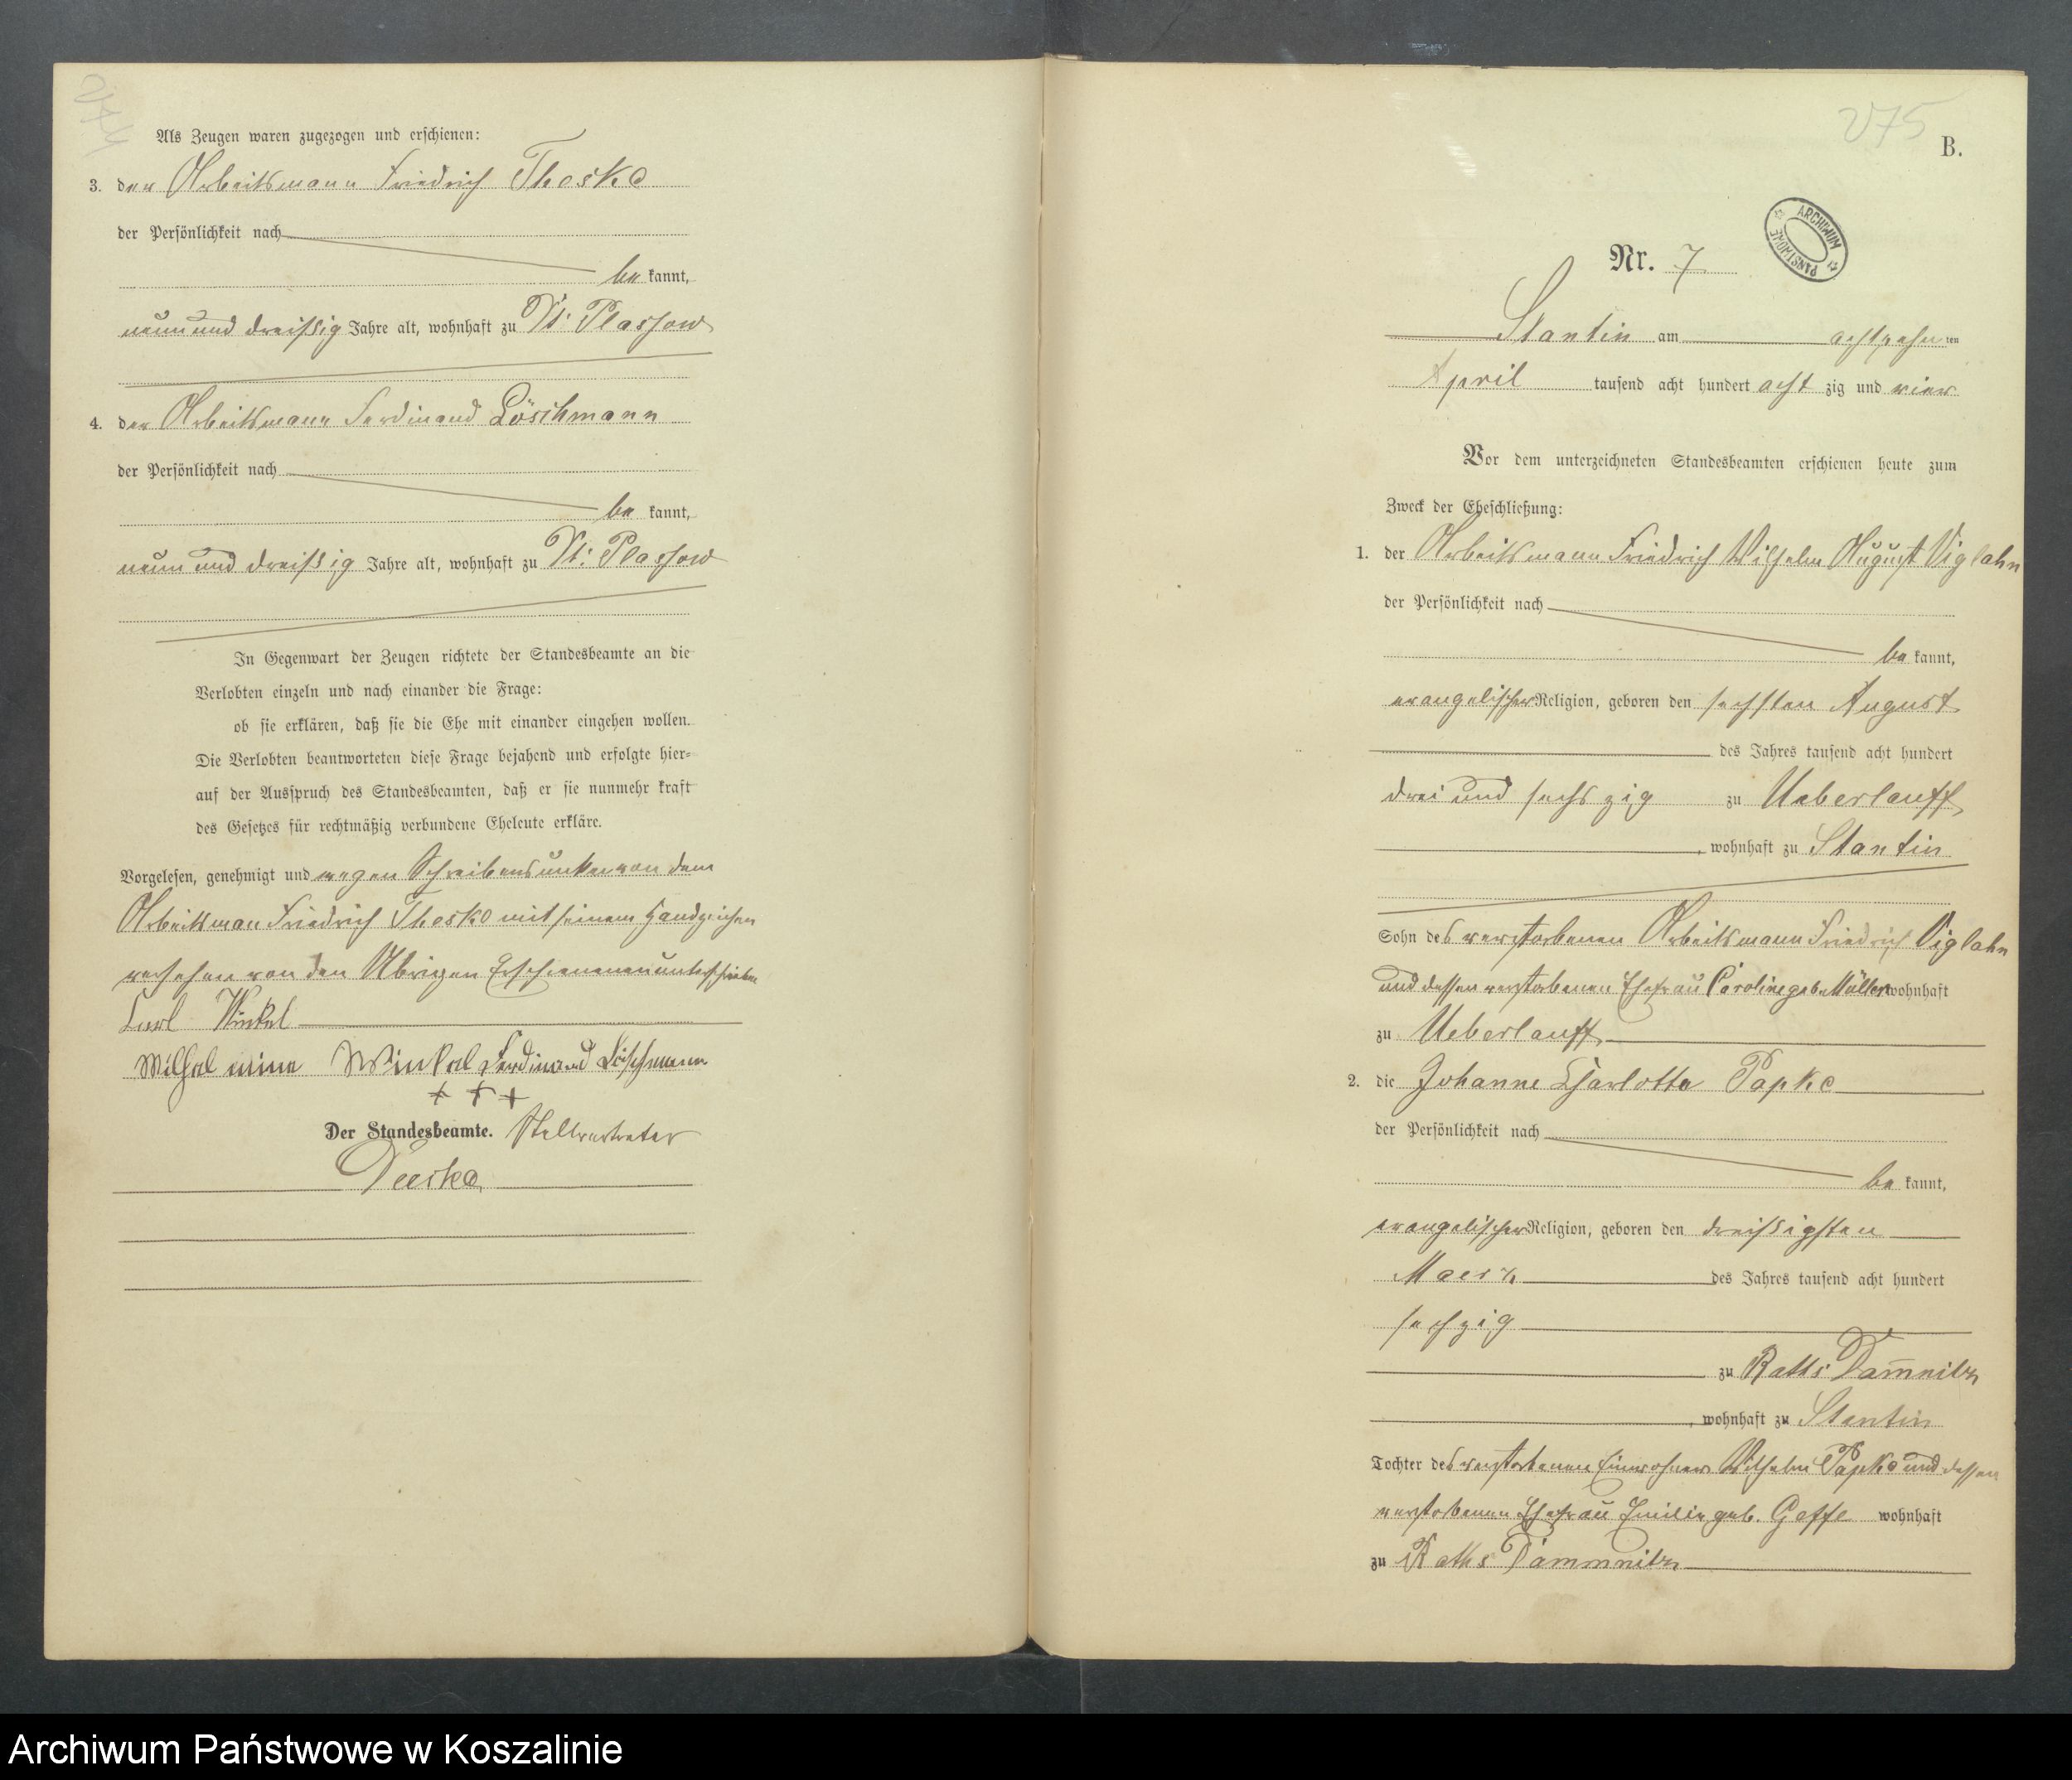 274
Als Zeugen waren zugezogen und erschienen:
3. der Arbeitsmann Friedrich Theske
der Persönlichkeit nach
be kannt,
neun und dreißig Jahre alt, wohnhaft zu Kl: Plassow
4. der Arbeitsmann Ferdinand Löschmann
der Persönlichkeit nach
be kannt,
neun und dreißig Jahre alt, wohnhaft zu Kl: Plassow
In Gegenwart der Zeugen richtete der Standesbeamte an die
Verlobten einzeln und nach einander die Frage:
ob sie erklären, daß sie die Ehe mit einander eingehen wollen.
Die Verlobten beantworteten diese Frage bejahend und erfolgte hier-
auf der Ausspruch des Standesbeamten, daß er sie nunmehr kraft
des Gesetzes für rechtmäßig verbundene Eheleute erkläre.
Vorgelesen, genehmigt und wegen Schreibensunkunde von dem
Arbeitsman Friedrich Theske mit seinem Handzeichen
versehen von den Übrigen Erschienenen unterschrieben
Carl Winkel
Wilhelmine Winkel Ferdinand Löschmann
+ + +
Der Standesbeamte. Stellvertreter
275
B.
ARCHIWUM PAŃSTWOWE
Nr. 7
Stantin am achtzehn ten
April tausend acht hundert acht zig und vier
Vor dem unterzeichneten Standesbeamten erschienen heute zum
Zweck der Eheschließung:
1. der Arbeitsmann Friedrich Wilhelm August Viglahn
der Persönlichkeit nach
be kannt,
evangelischer Religion, geboren den sechsten August
des Jahres tausend acht hundert
drei und sechs zig zu Ueberlauff
, wohnhaft zu Stantin
Sohn des verstorbenen Arbeitsmann Friedrich Viglahn
und dessen verstorbenen Ehefrau Caroline geb. Müller wohnhaft
zu Ueberlauff
2. die Johanne Charlotte Papke
der Persönlichkeit nach
be kannt,
evangelischer Religion, geboren den dreißigsten
Maerz des Jahres tausend acht hundert
sechzig
zu Raths Dam̅nitz
, wohnhaft zu Stantin
Tochter des verstorbenen Einwohners Wilhelm Papke und dessen
verstorbenen Ehefrau Emilie geb. wohnhaft
zu Raths Dammnitz
Archiwum Państwowe w Koszalinie